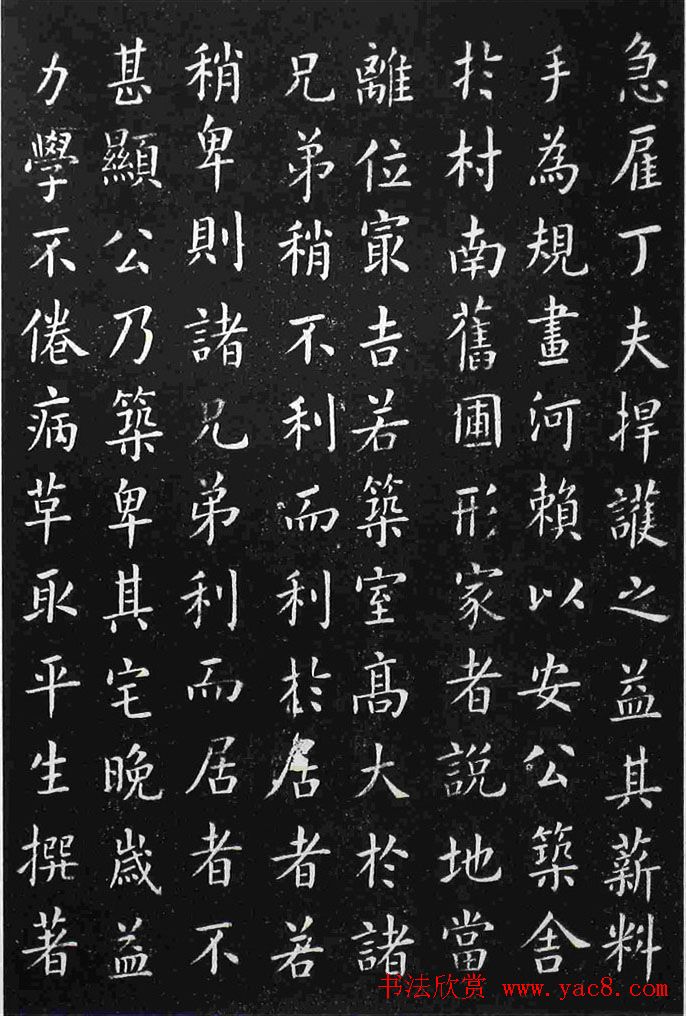 急雇丁夫捍護之益其薪料
手為規畫河賴以安公築舍
於村南舊圃形家者說地當
離位㝡吉若築室高大於諸
兄弟稍不利而利於居者若
稍卑則諸兄弟利而居者不
甚顯公乃築卑其宅晚歲益
力學不倦病草取平生撰著
书法欣赏 www.yac8.com